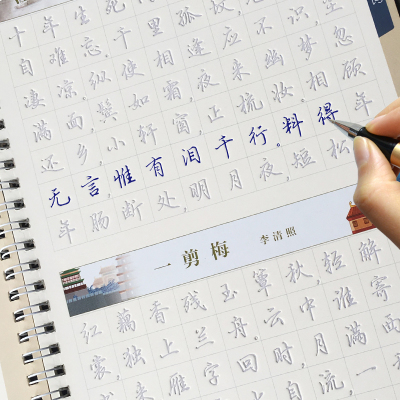 十年生死
自难忘,千里孤坟,
凄凉,纵使相逢应不识,尘
满面,鬓如霜,夜来幽梦忽
还乡,小轩窗,正梳妆。相顾
无言,惟有泪千行。料得年
年肠断处,明月夜,短松
一剪梅 李清照
红藕香残玉簟秋,轻解
裳,独上兰舟。云中谁寄
来,雁字回时,月满
自流,一